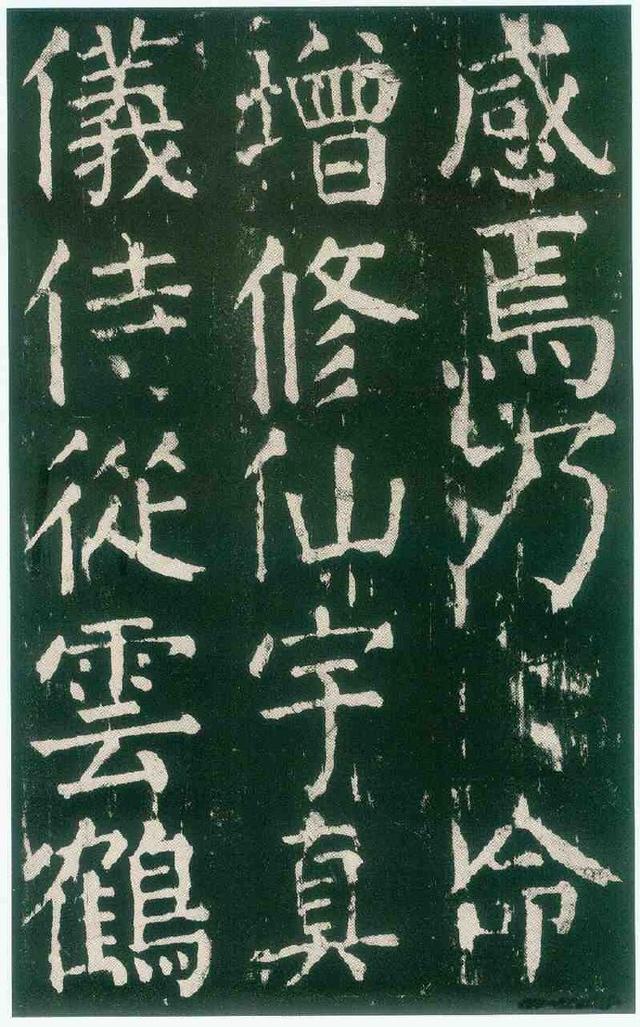 感焉乃命
增修仙宇真
儀侍從雲鶴